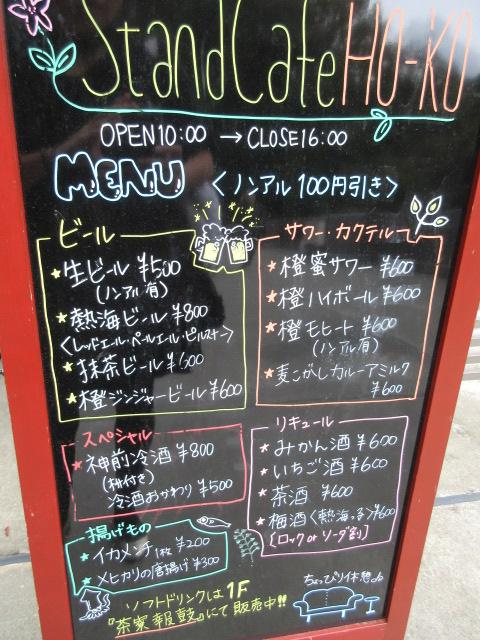 StandCafe HO-KO
OPEN10:00 →CLOSE16:00
MENU 〈ノンアル100円引き〉
ビール
★生ビール ¥500
(ノンアル有)
★熱海ビール ¥800
〈レッドエール・ペールエール・ピルスナー〉
★抹茶ビール ¥600
★橙ジンジャービール ¥600
サワー・カクテル
★橙蜜サワー ¥600
★橙ハイボール ¥600
★橙モヒート ¥600
(ノンアル有)
★麦こがしカルーアミルク
¥600
スペシャル
★神前冷酒 ¥800
(枡付き)
冷酒おかわり ¥500
リキュール
★みかん酒 ¥600
★いちご酒 ¥600
★茶酒 ¥600
★梅酒〈熱海っ子〉¥600
[ロック or ソーダ割]
揚げもの
★イカメンチ 1枚 ¥200
★メヒカリの唐揚げ ¥300
ちょっぴり休憩
ソフトドリンクは 1F
『茶寮報鼓』にて販売中!!